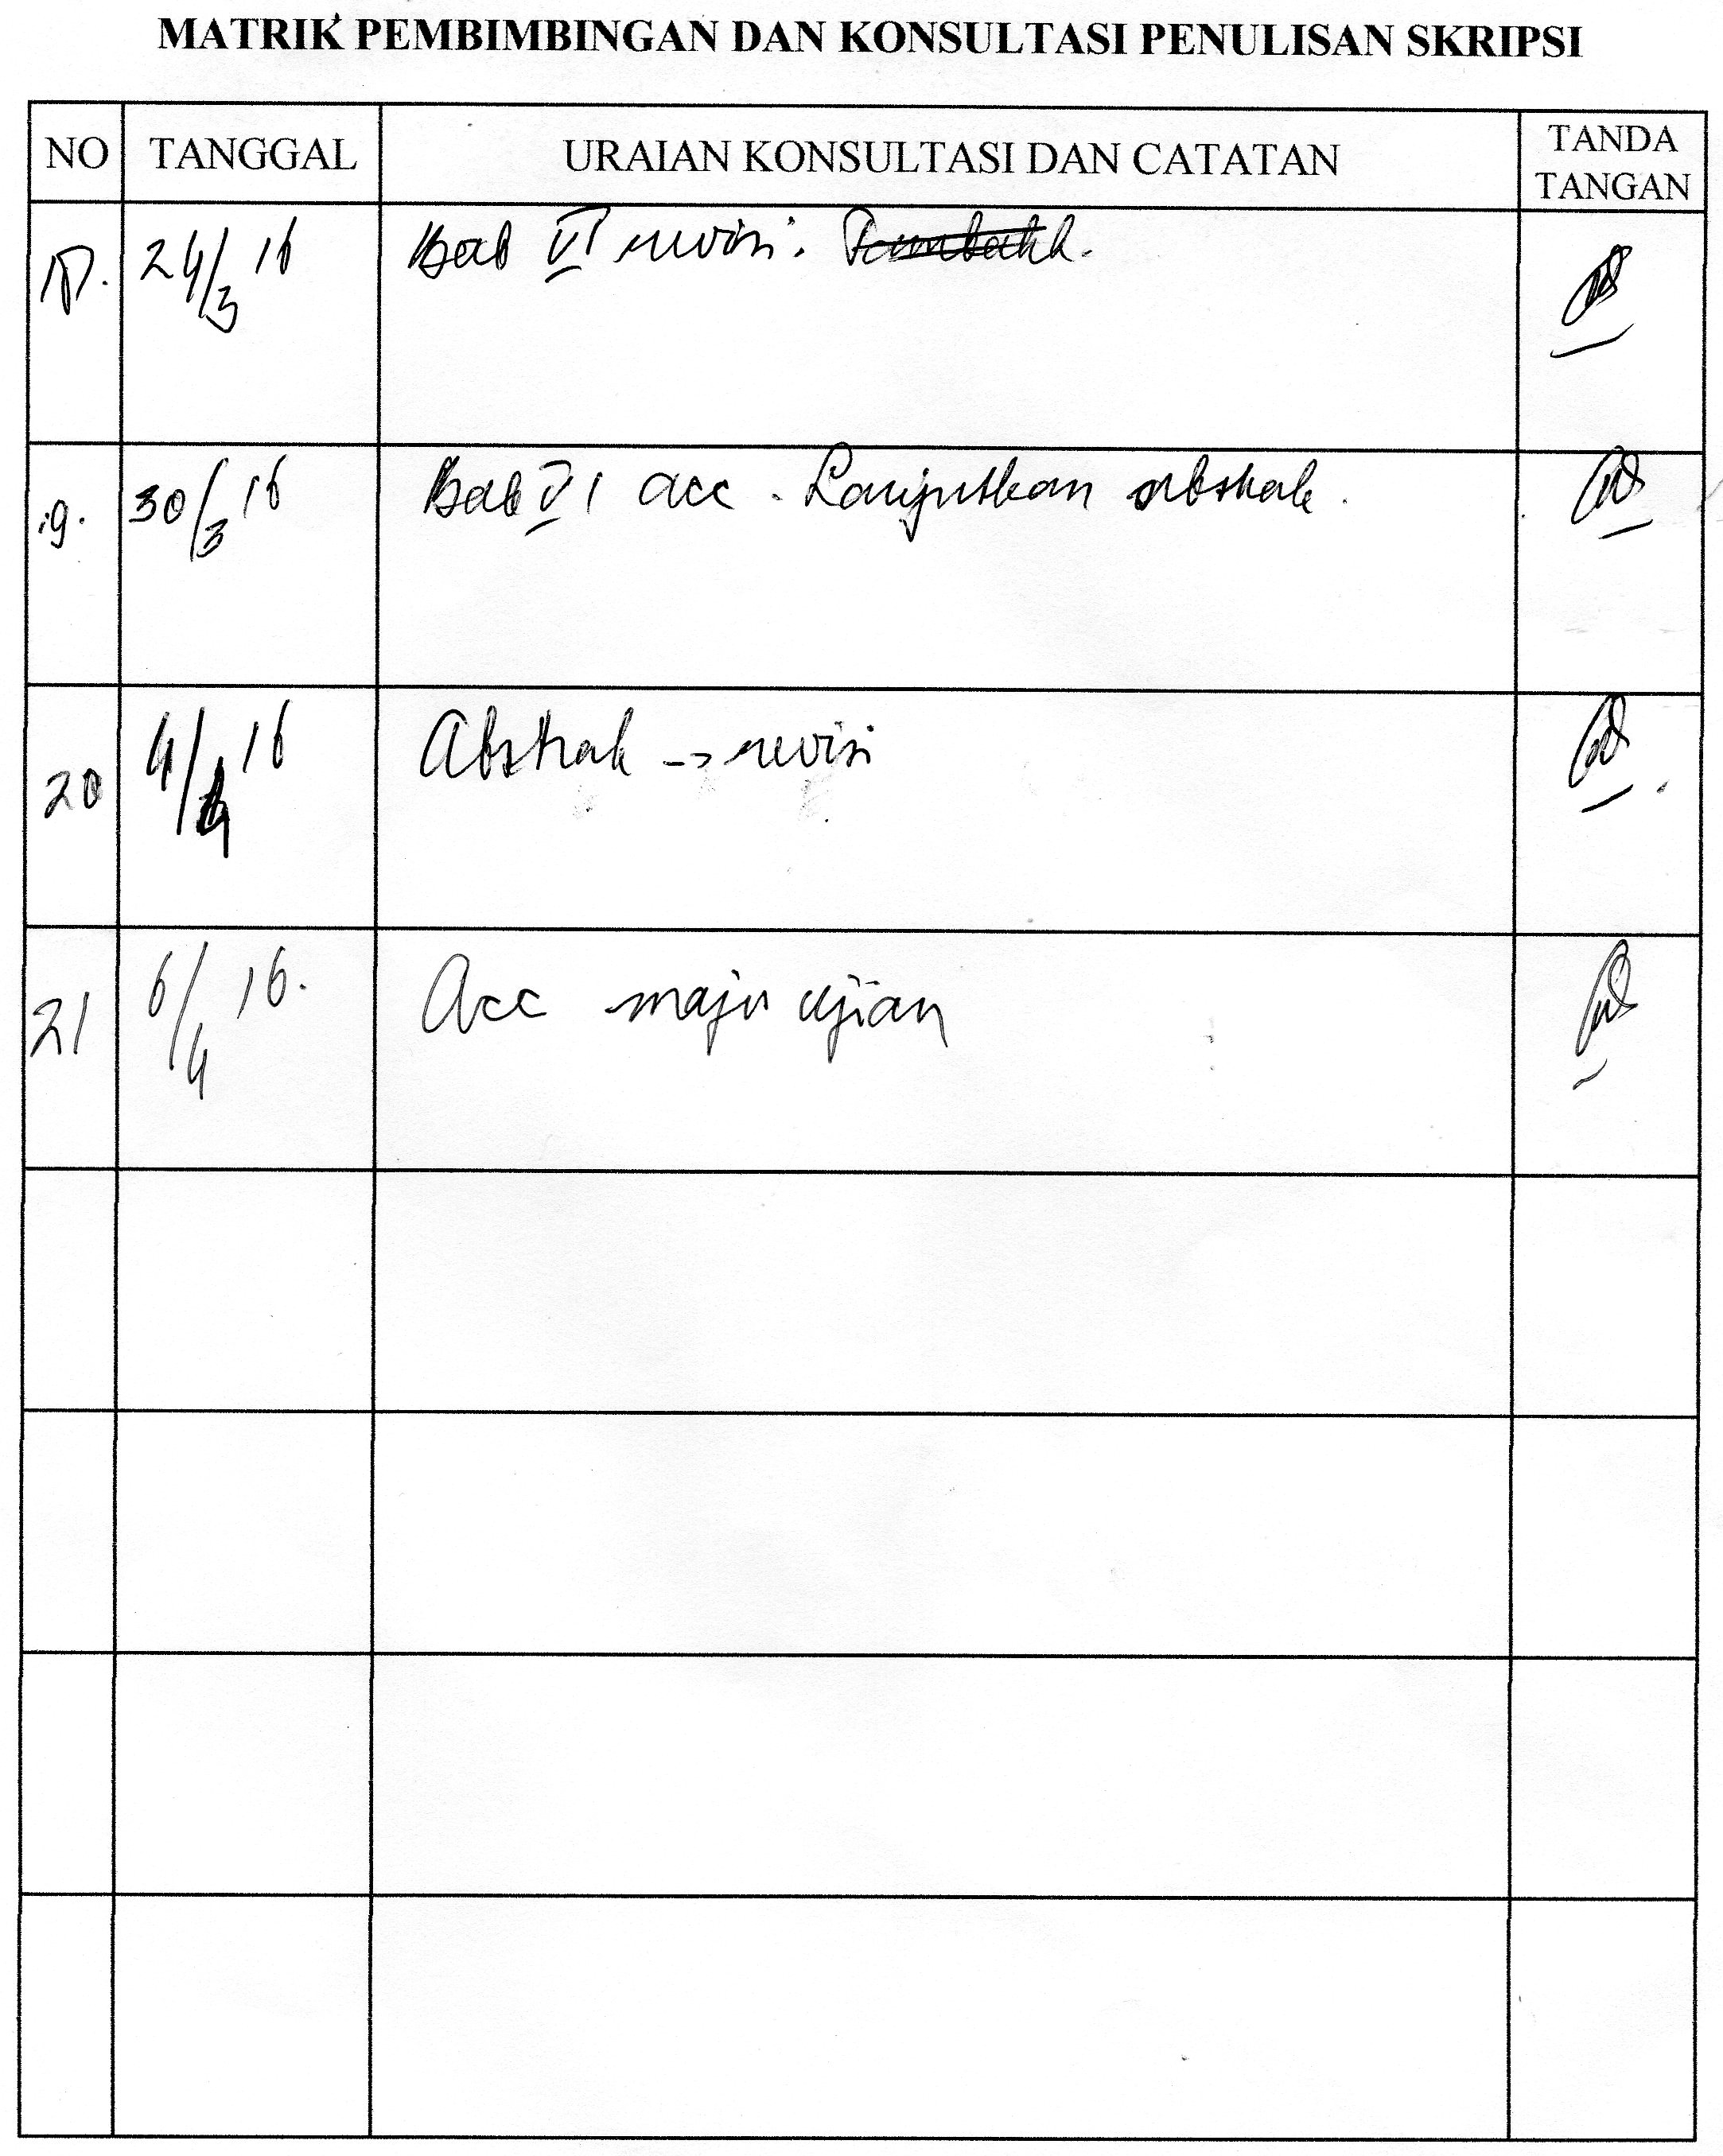 MATRIK PEMBIMBINGAN DAN KONSULTASI PENULISAN SKRIPSI
NO TANGGAL URAIAN KONSULTASI DAN CATATAN TANDA TANGAN
18. 24/3 16 Bab VI revisi.
19. 30/3 16 Bab VI acc. Lanjutkan abstrak.
20 4/4 16 Abstrak -> revisi
21 6/4 16. Acc maju ujian